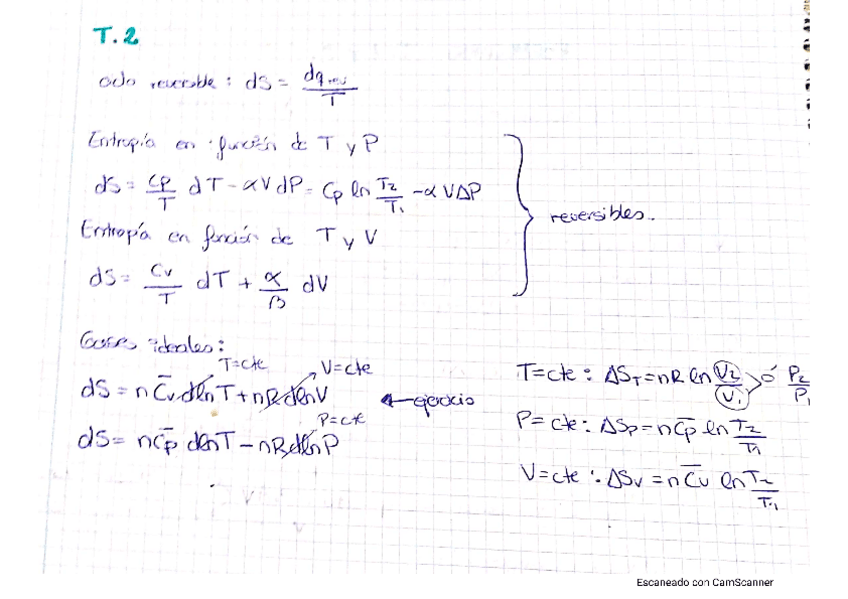 T.2
ciclo reversible: dS = dq rev / T
Entropía en función de T y P
dS = Cp/T dT - αVdP = Cp ln T2/T1 - αVΔP
Entropía en función de T y V
dS = Cv/T dT + α/β dV
reversibles.
Gases ideales:
T=cte V=cte
dS = nC̅v dlnT + nR dlnV ← ejercicio
P=cte
dS = nC̅p dlnT - nR dlnP
T=cte: ΔS_T = nR ln V2/V1 > ó P2/P1
P=cte: ΔSp = nC̅p ln T2/T1
V=cte: ΔSv = nC̅v ln T2/T1
Escaneado con CamScanner